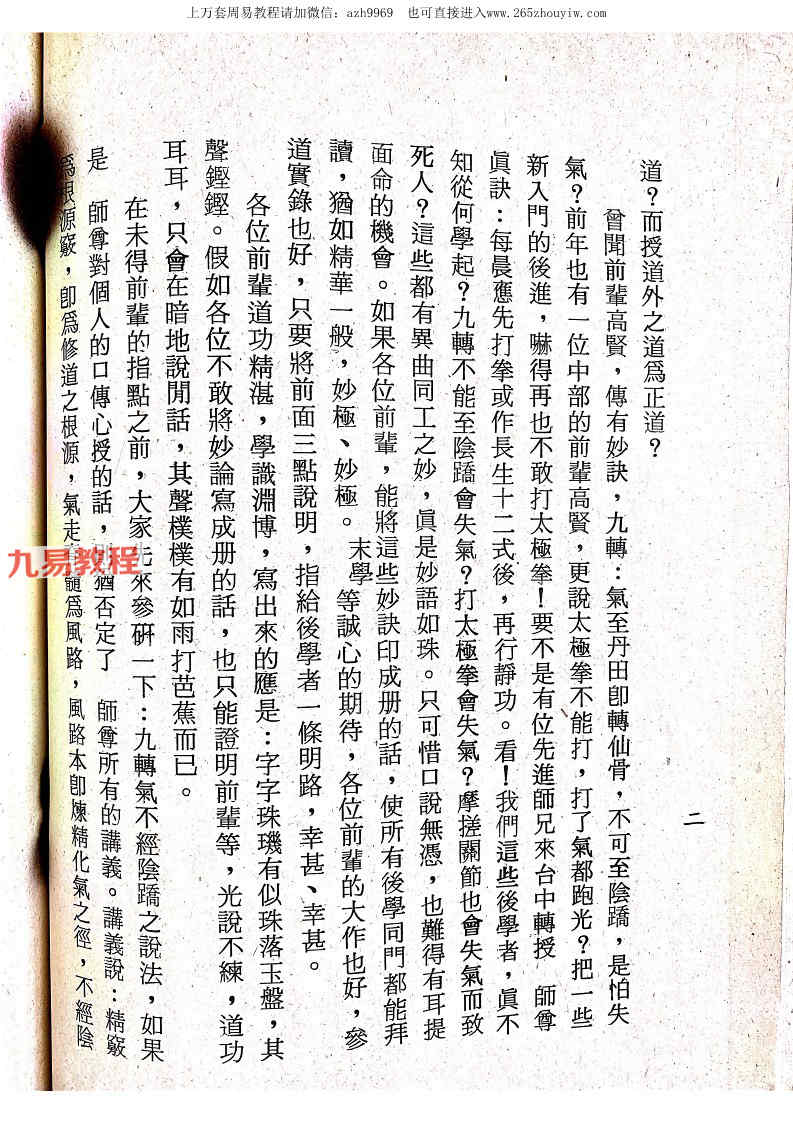 上万套周易教程请加微信：azh9969　也可直接进入www.265zhouyiw.com
二
道？而授道外之道爲正道？
曾聞前輩高賢，傳有妙訣，九轉：氣至丹田卽轉仙骨，不可至陰蹻，是怕失
氣？前年也有一位中部的前輩高賢，更說太極拳不能打，打了氣都跑光？把一些
新入門的後進，嚇得再也不敢打太極拳！要不是有位先進師兄來台中轉授　師尊
眞訣：每晨應先打拳或作長生十二式後，再行靜功。看！我們這些後學者，眞不
知從何學起？九轉不能至陰蹻會失氣？打太極拳會失氣？摩搓關節也會失氣而致
死人？這些都有異曲同工之妙，眞是妙語如珠。只可惜口說無憑，也難得有耳提
面命的機會。如果各位前輩，能將這些妙訣印成册的話，使所有後學同門都能拜
讀，猶如精華一般，妙極、妙極。末學等誠心的期待，各位前輩的大作也好，參
道實錄也好，只要將前面三點說明，指給後學者一條明路，幸甚、幸甚。
各位前輩道功精湛，學識淵博，寫出來的應是：字字珠璣有似珠落玉盤，其
聲鏗鏗。假如各位不敢將妙論寫成册的話，也只能證明前輩等，光說不練，道功
耳耳，只會在暗地說閒話，其聲樸樸有如雨打芭蕉而已。
在未得前輩的指點之前，大家先來參硏一下：九轉氣不經陰蹻之說法，如果
是　師尊對個人的口傳心授的話，猶否定了　師尊所有的講義。講義說：精竅
爲根源竅，卽爲修道之根源，氣走髓爲風路，風路本卽煉精化氣之徑，不經陰
九易教程